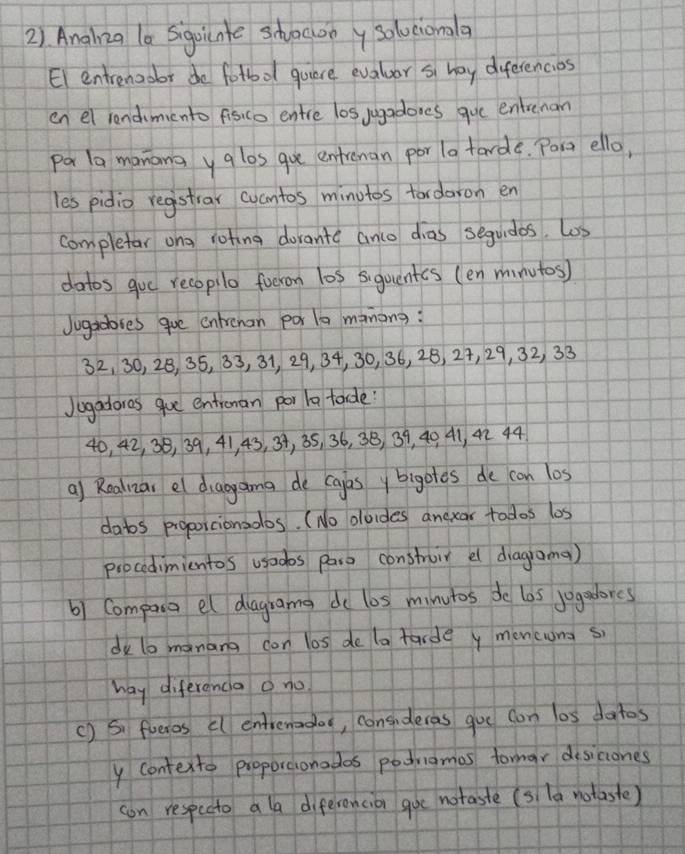 2). Analiza la siguiente situacion y solucionala
El entrenador de futbol quiere evaluar si hay diferencias
en el rendimiento fisico entre los jugadores que entrenan
por la mañana y a los que entrenan por la tarde. Para ello,
les pidio registrar cuantos minutos tardaron en
completar una rutina durante cinco dias seguidos. Los
datos que recopilo fueron los siguientes (en minutos)
Jugadores que entrenan por la mañana:
32, 30, 28, 35, 33, 31, 29, 34, 30, 36, 28, 27, 29, 32, 33
Jugadores que entrenan por la tarde:
40, 42, 38, 39, 41, 43, 37, 35, 36, 38, 39, 40, 41, 42 44.
a) Realizar el diagrama de cajas y bigotes de con los
datos proporcionados. (No olvides anexar todos los
procedimientos usados para construir el diagrama)
b) Compara el diagrama de los minutos de los jugadores
de la manana con los de la tarde y menciona si
hay diferencia o no.
c) Si fueras el entrenador, consideras que con los datos
y contexto proporcionados podriamos tomar desiciones
con respecto a la diferencia que notaste (si la notaste)